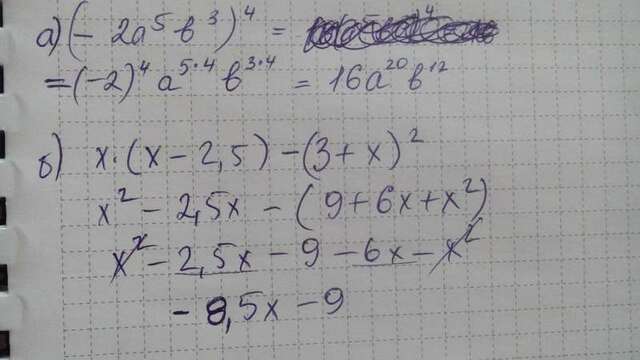 а) (- 2a⁵ b³)⁴ =
= (-2)⁴ a⁵·⁴ b³·⁴ = 16a²⁰ b¹²
б) x·(x - 2,5) - (3 + x)²
x² - 2,5x - (9 + 6x + x²)
x² - 2,5x - 9 - 6x - x²
- 8,5x - 9